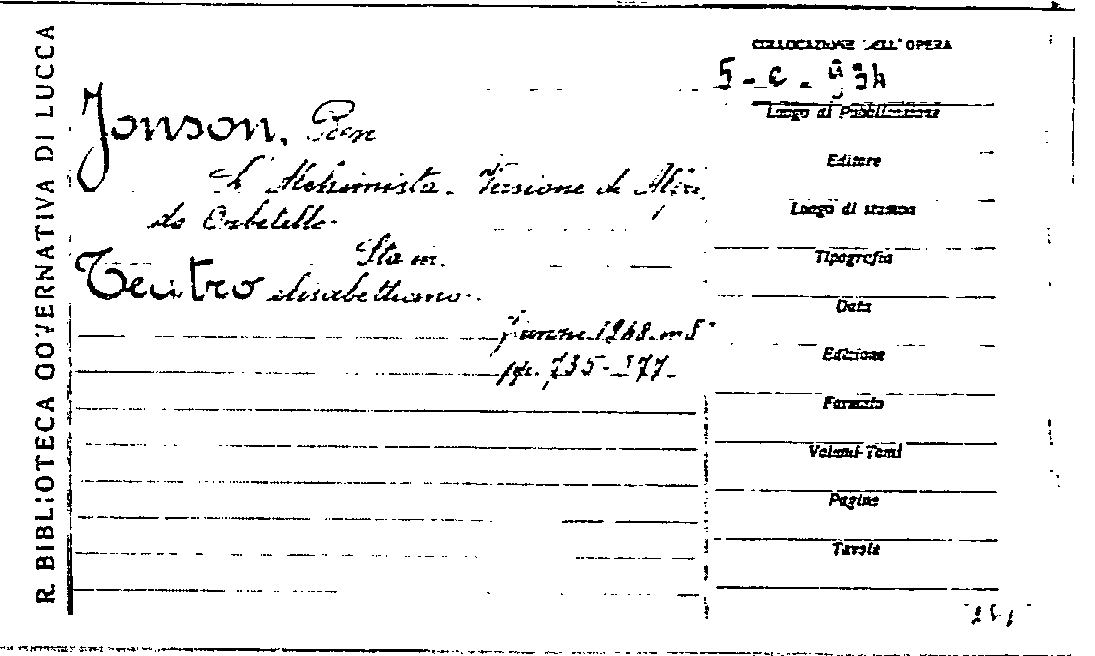 R. BIBLIOTECA GOVERNATIVA DI LUCCA
COLLOCAZIONE DELL'OPERA
Jonson, Ben
L'Alchimista. Versione di
da Orbetello.
Sta in:
Teatro elisabettiano.
Firenze 1948. in 8°
pp. 735-
Luogo di Pubblicazione
Editore
Luogo di stampa
Tipografia
Data
Edizione
Formato
Volumi-Tomi
Pagine
Tavole